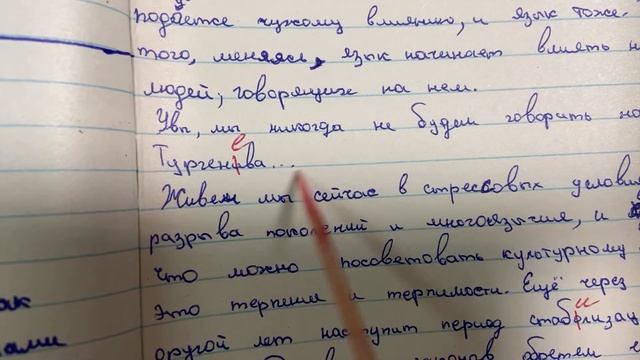 поддаётся чужому влиянию, и язык тоже.
того, меняясь, язык начинает влиять н
людей, говорящих на нем.
Увы, мы никогда не будем говорить на
Тургенева...
Живем мы сейчас в стрессовых услови
разрыва поколений и многоязычия, и
что можно посоветовать культурному
это терпения и терпимости. Ещё через
другой лет наступит период стабилизац
ак
ами